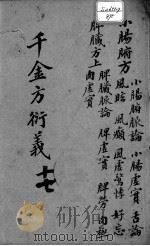 小腸腑脈論 小腸虛實 舌論
小腸腑方 風眩 風癲 風虛驚悸 好忘
脾臟脈論 脾虛實 脾勞 肉極
脾臟方上 肉虛實
千金方衍義 十七